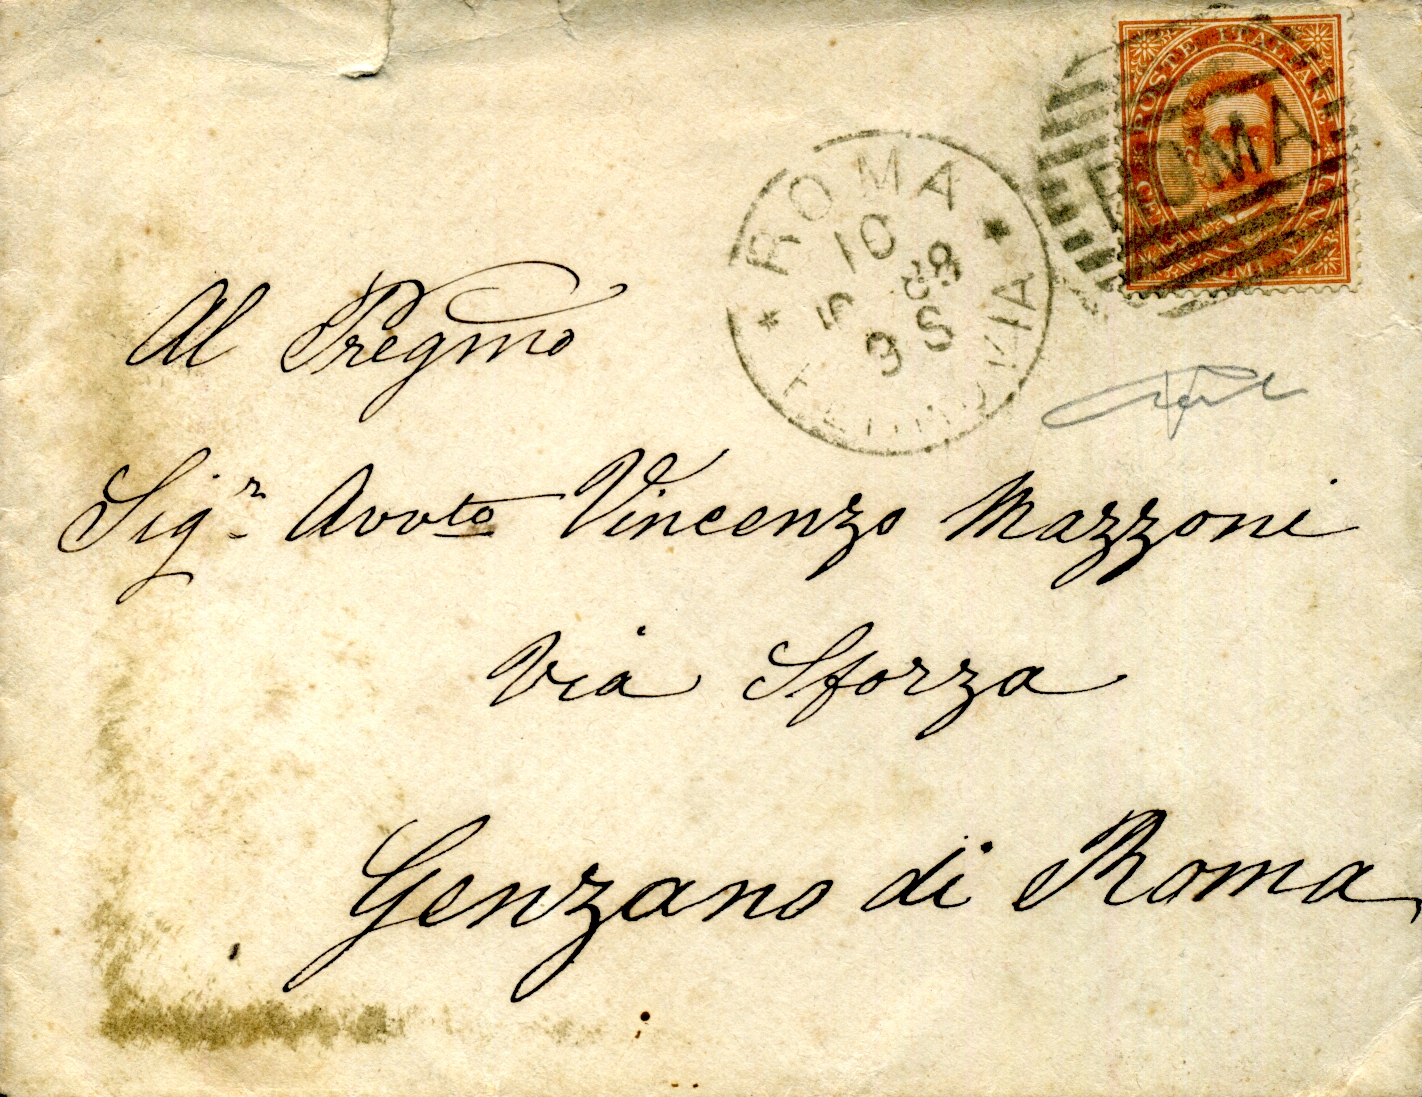 POSTE ITALIANE
ROMA
ROMA
10
88
9 S
FERROVIA
Al Pregmo
Sigr. Avvto Vincenzo Mazzoni
Via Sforza
Genzano di Roma